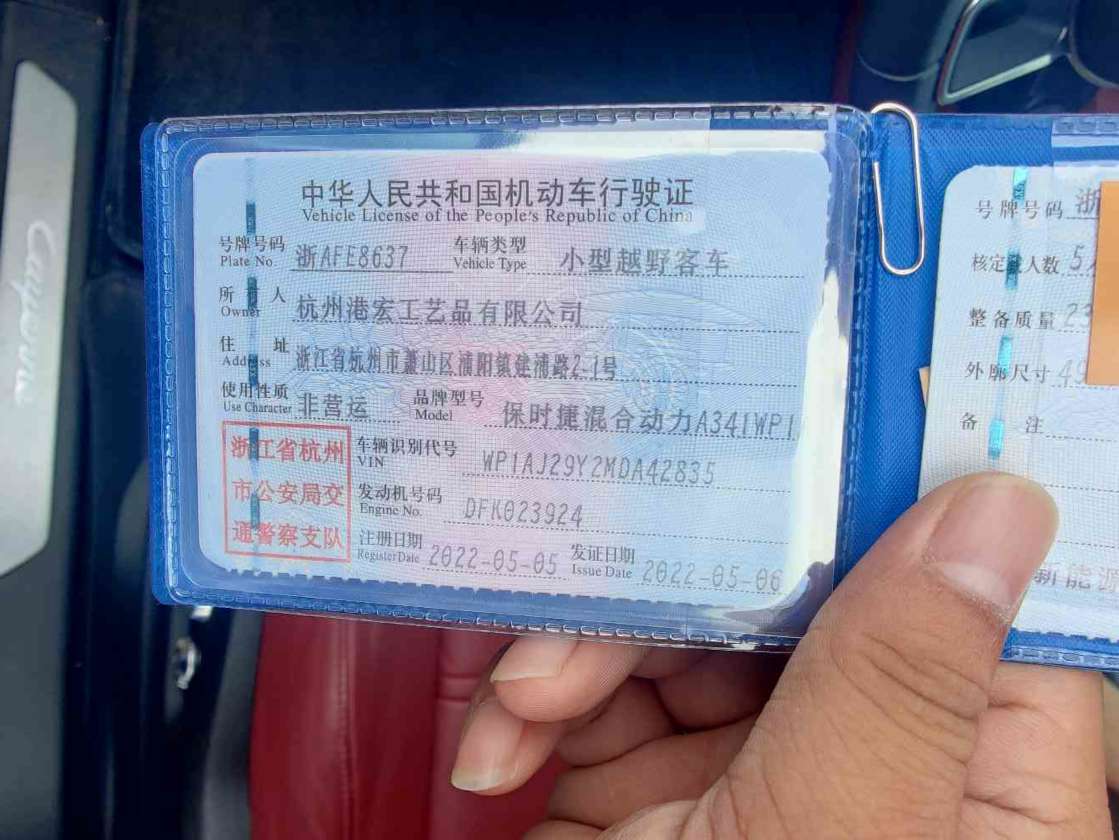 中华人民共和国机动车行驶证
Vehicle License of the People's Republic of China
号牌号码 浙AFE8637 车辆类型 小型越野客车
Plate No. Vehicle Type
所有人 杭州港宏工艺品有限公司
Owner
住址 浙江省杭州市萧山区浦阳镇建浦路2-1号
Address
使用性质 非营运 品牌型号 保时捷混合动力A341WP1
Use Character Model
浙江省杭州
市公安局交
通警察支队
车辆识别代号 WP1AJ29Y2MDA42835
VIN
发动机号码 DFK023924
Engine No.
注册日期 2022-05-05 发证日期 2022-05-06
Register Date Issue Date
号牌号码 浙
核定载人数 5
整备质量 23
外廓尺寸 49
备注
新能源
Cayenne